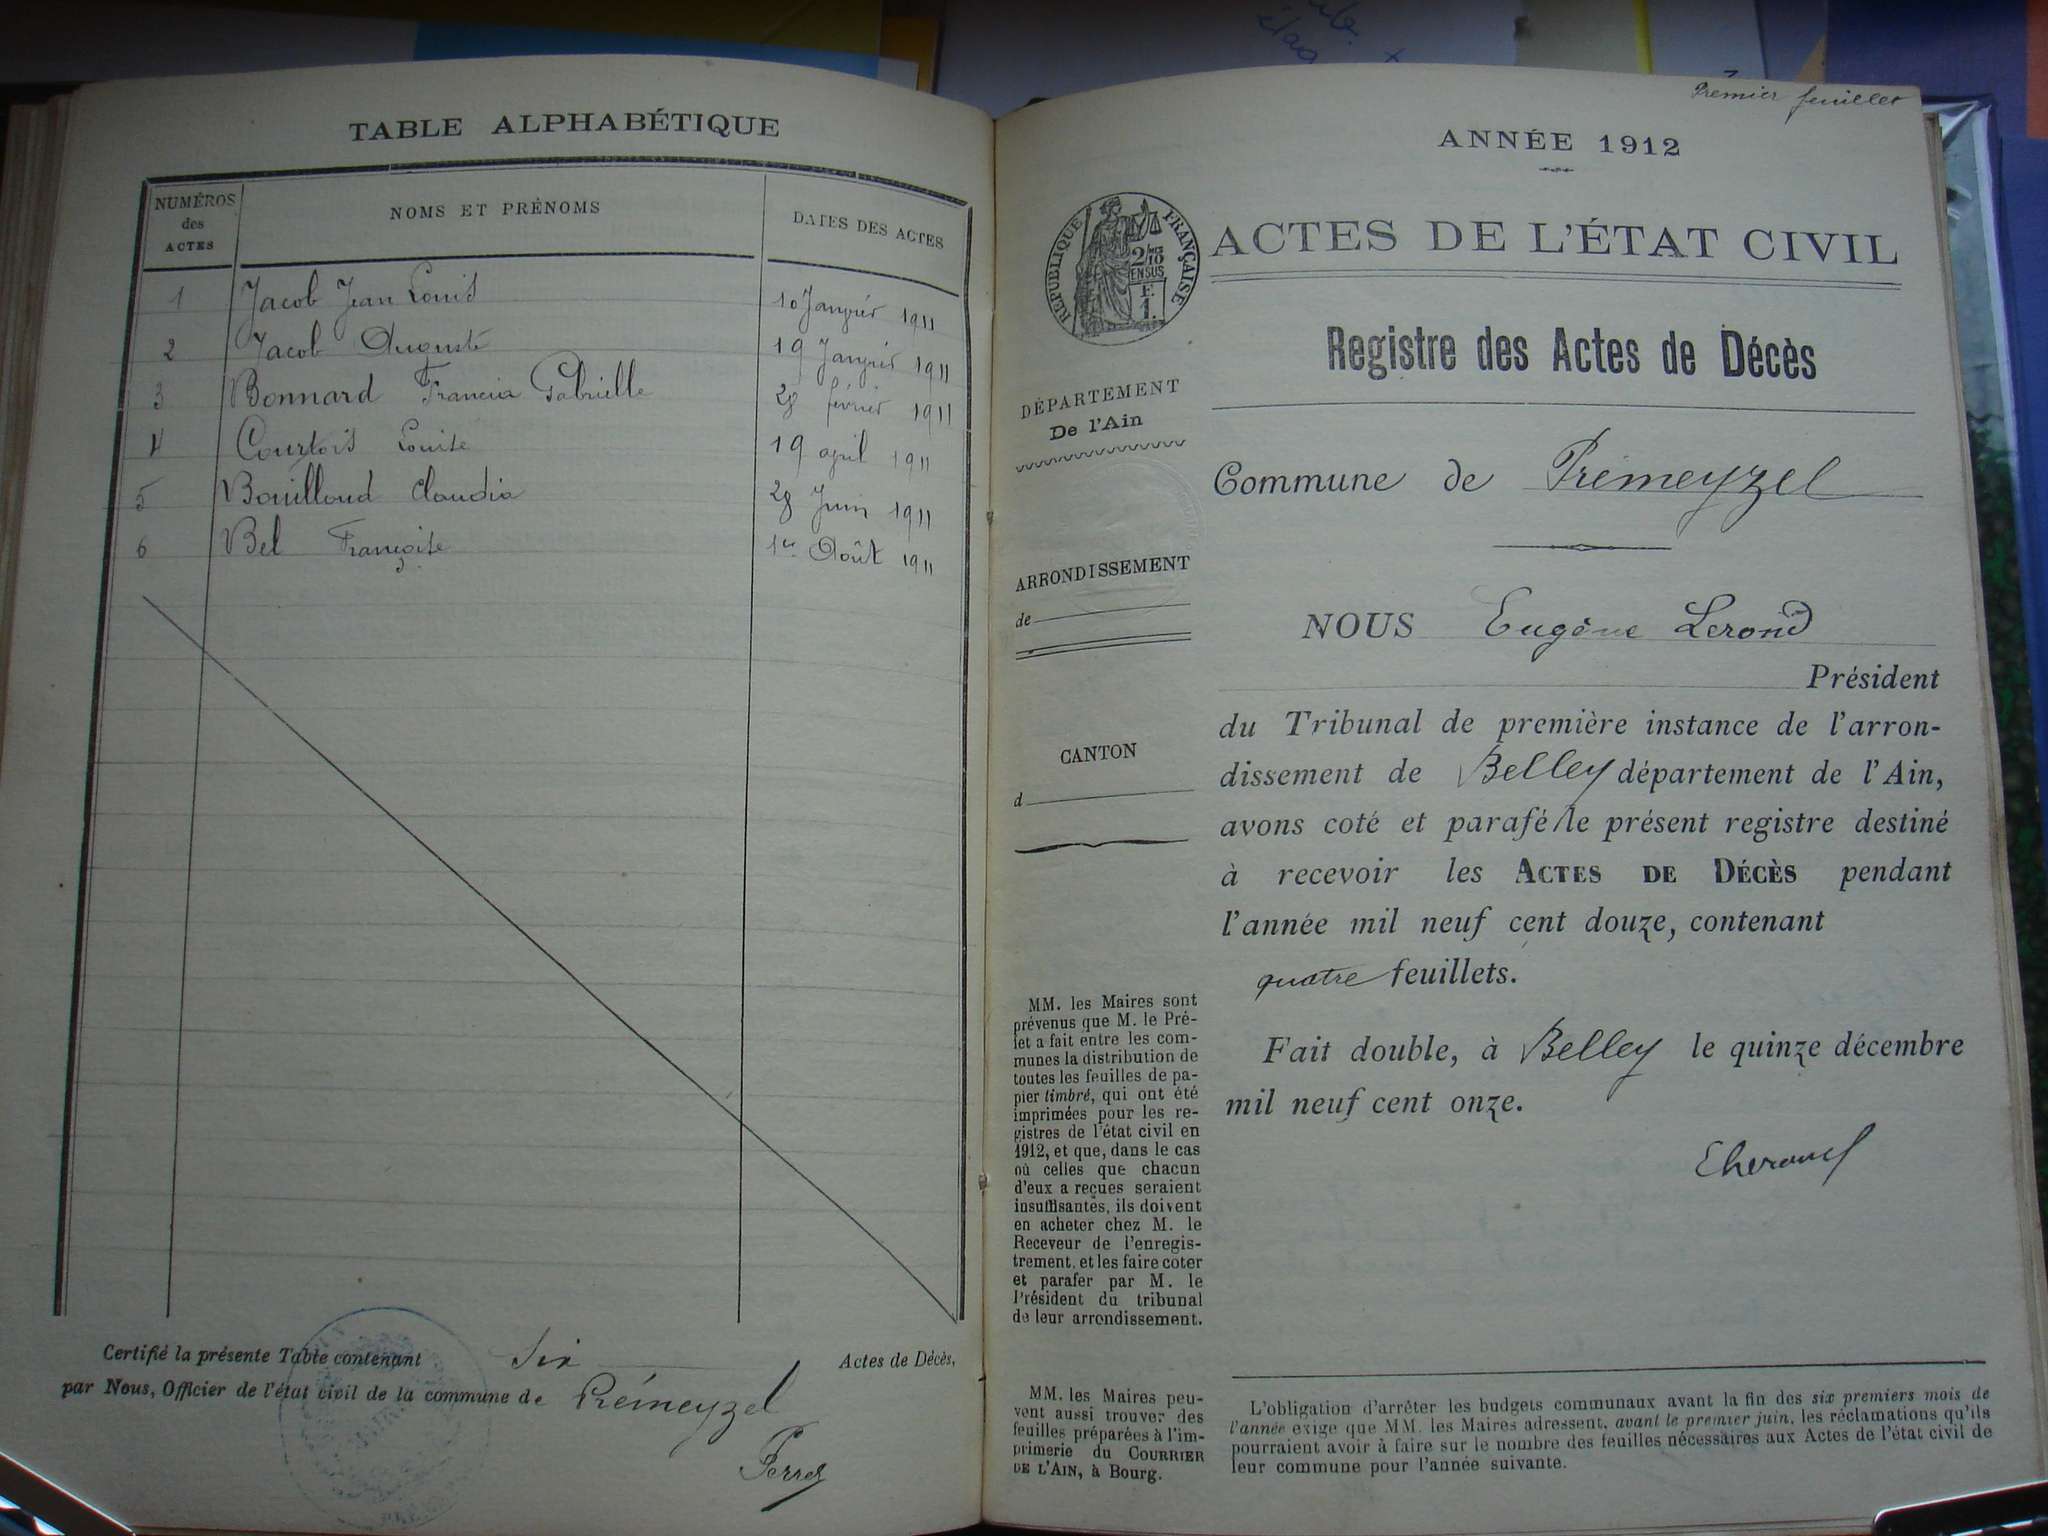 TABLE ALPHABÉTIQUE
NUMÉROS des ACTES
NOMS ET PRÉNOMS
DATES DES ACTES
1 Jacob Jean Louis 10 Janvier 1911
2 Jacob Auguste 19 Janvier 1911
3 Bonnard Francia Gabrielle 28 février 1911
4 Courtois Louise 19 april 1911
5 Bouilloud Claudia 28 Juin 1911
6 Bel Françoise 1er Août 1911
Certifié la présente Table contenant six Actes de Décès,
par Nous, Officier de l'état civil de la commune de Prémeyzel
Perret
Premier feuillet
ANNÉE 1912
RÉPUBLIQUE FRANÇAISE
2/10
EN SUS
F.
1.
ACTES DE L'ÉTAT CIVIL
Registre des Actes de Décès
DÉPARTEMENT
De l'Ain
Commune de Prémeyzel
ARRONDISSEMENT
de
CANTON
d
NOUS Eugène Lerond
Président
du Tribunal de première instance de l'arron-
dissement de Belley département de l'Ain,
avons coté et parafé le présent registre destiné
à recevoir les ACTES DE DÉCÈS pendant
l'année mil neuf cent douze, contenant
quatre feuillets.
Fait double, à Belley le quinze décembre
mil neuf cent onze.
MM. les Maires sont
prévenus que M. le Pré-
fet a fait entre les com-
munes la distribution de
toutes les feuilles de pa-
pier timbré, qui ont été
imprimées pour les re-
gistres de l'état civil en
1912, et que, dans le cas
où celles que chacun
d'eux a reçues seraient
insuffisantes, ils doivent
en acheter chez M. le
Receveur de l'enregis-
trement, et les faire coter
et parafer par M. le
Président du tribunal
de leur arrondissement.
MM. les Maires peu-
vent aussi trouver des
feuilles préparées à l'im-
primerie du COURRIER
DE L'AIN, à Bourg.
L'obligation d'arrêter les budgets communaux avant la fin des six premiers mois de
l'année exige que MM. les Maires adressent, avant le premier juin, les réclamations qu'ils
pourraient avoir à faire sur le nombre des feuilles nécessaires aux Actes de l'état civil de
leur commune pour l'année suivante.